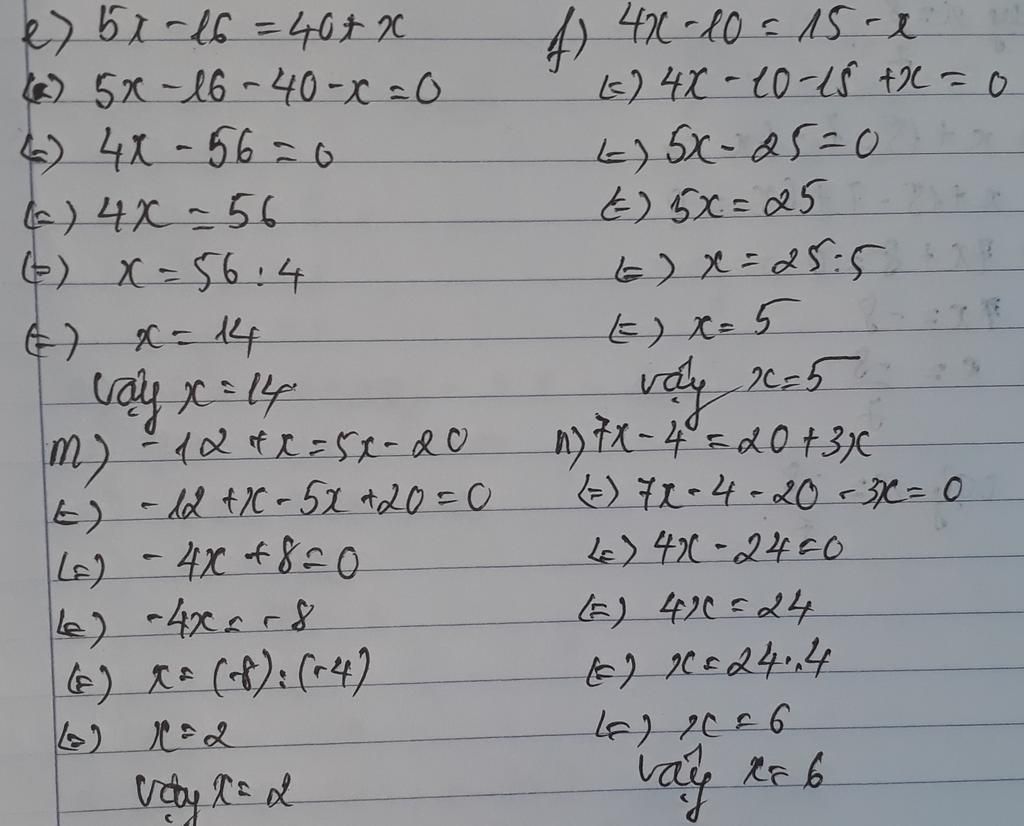 e) 5x - 16 = 40 + x
<=> 5x - 16 - 40 - x = 0
<=> 4x - 56 = 0
<=> 4x = 56
<=> x = 56 : 4
<=> x = 14
Vậy x = 14
f) 4x - 10 = 15 - x
<=> 4x - 10 - 15 + x = 0
<=> 5x - 25 = 0
<=> 5x = 25
<=> x = 25 : 5
<=> x = 5
Vậy x = 5
m) -12 + x = 5x - 20
<=> -12 + x - 5x + 20 = 0
<=> -4x + 8 = 0
<=> -4x = -8
<=> x = (-8) : (-4)
<=> x = 2
Vậy x = 2
n) 7x - 4 = 20 + 3x
<=> 7x - 4 - 20 - 3x = 0
<=> 4x - 24 = 0
<=> 4x = 24
<=> x = 24 : 4
<=> x = 6
Vậy x = 6